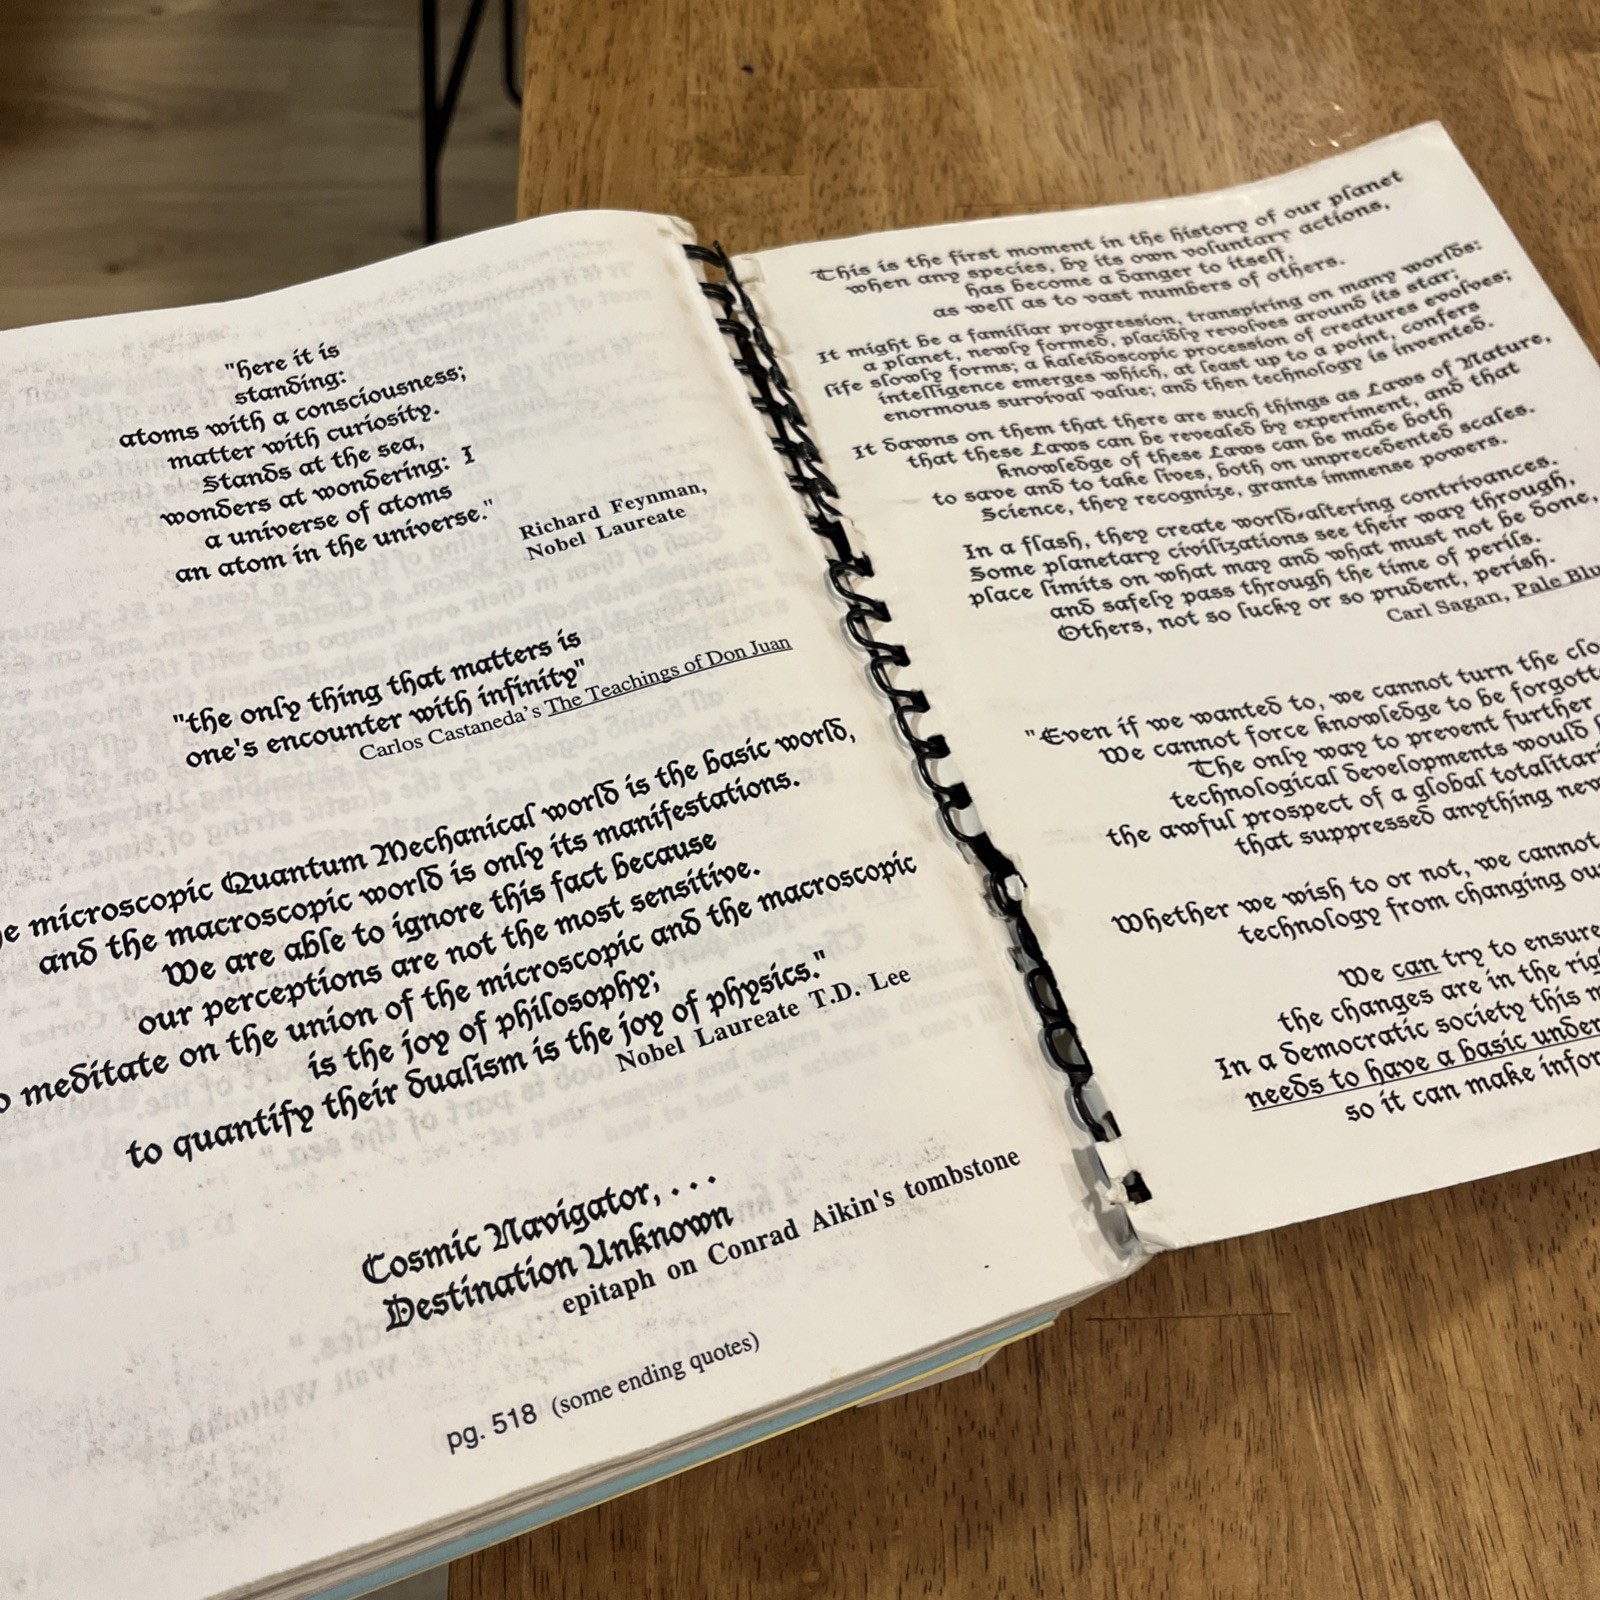 "here it is
standing:
atoms with a consciousness;
matter with curiosity.
Stands at the sea,
wonders at wondering: I
a universe of atoms
an atom in the universe."
Richard Feynman,
Nobel Laureate
"the only thing that matters is
one's encounter with infinity"
Carlos Castaneda's The Teachings of Don Juan
microscopic Quantum Mechanical world is the basic world,
and the macroscopic world is only its manifestations.
We are able to ignore this fact because
our perceptions are not the most sensitive.
meditate on the union of the microscopic and the macroscopic
is the joy of philosophy;
to quantify their dualism is the joy of physics."
Nobel Laureate T.D. Lee
Cosmic Navigator, . . .
Destination Unknown
epitaph on Conrad Aikin's tombstone
pg. 518 (some ending quotes)
This is the first moment in the history of our planet
when any species, by its own voluntary actions,
has become a danger to itself,
as well as to vast numbers of others.
It might be a familiar progression, transpiring on many worlds:
a planet, newly formed, placidly revolves around its star;
life slowly forms; a kaleidoscopic procession of creatures evolves;
intelligence emerges which, at least up to a point, confers
enormous survival value; and then technology is invented.
It dawns on them that there are such things as Laws of Nature,
that these Laws can be revealed by experiment, and that
knowledge of these Laws can be made both
to save and to take lives, both on unprecedented scales.
Science, they recognize, grants immense powers.
In a flash, they create world-altering contrivances.
Some planetary civilizations see their way through,
place limits on what may and what must not be done,
and safely pass through the time of perils.
Others, not so lucky or so prudent, perish.
Carl Sagan, Pale
"Even if we wanted to, we cannot turn the
We cannot force knowledge to be
The only way to prevent further
technological developments would
the awful prospect of a global
that suppressed anything
Whether we wish to or not, we cannot
technology from changing
We can try to ensure
the changes are in the
In a democratic society this
needs to have a basic
so it can make